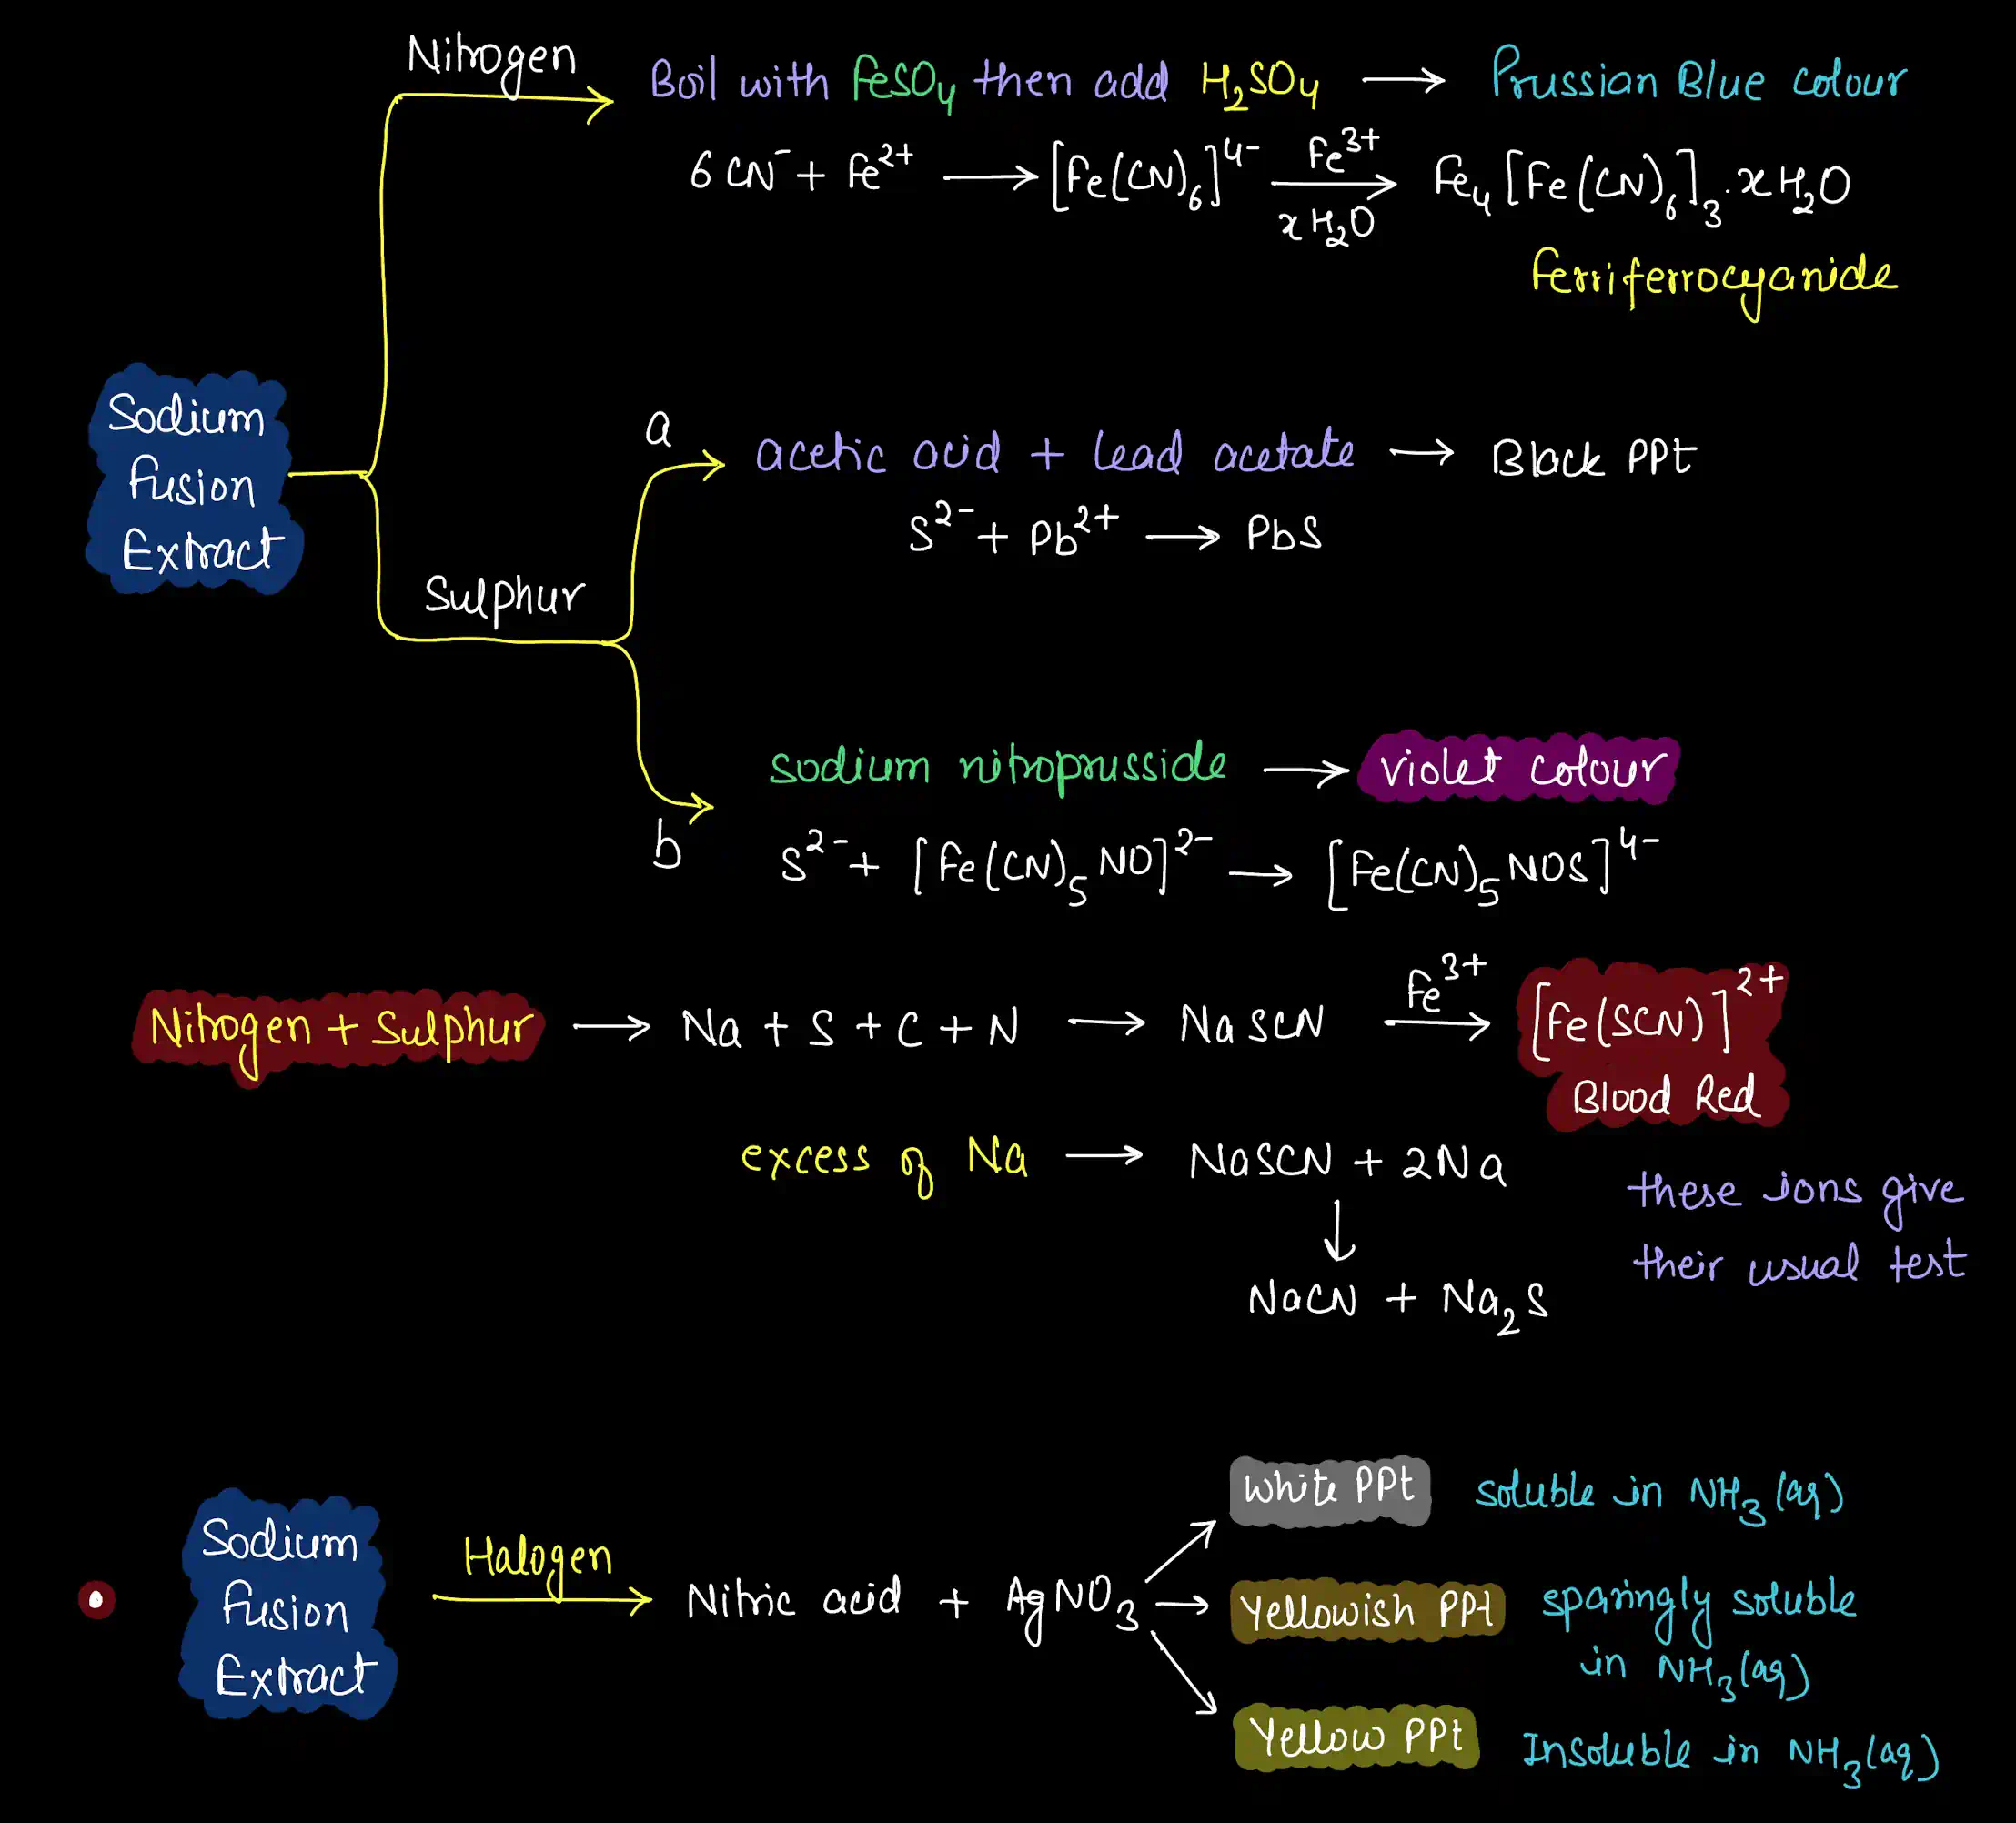 Nitrogen
Boil with FeSO₄ then add H₂SO₄ → Prussian Blue colour
6 CN⁻ + Fe²⁺ → [Fe(CN)₆]⁴⁻ Fe³⁺ → xH₂O Fe₄[Fe(CN)₆]₃.xH₂O
Ferriferrocyanide
Sodium
Fusion
Extract
Sulphur
a
acetic acid + lead acetate → Black PPt
S²⁻ + Pb²⁺ → PbS
b
sodium nitroprusside → violet colour
S²⁻ + [Fe(CN)₅NO]²⁻ → [Fe(CN)₅NOS]⁴⁻
Nitrogen + Sulphur → Na + S + C + N → NaSCN Fe³⁺ → [Fe(SCN)]²⁺
Blood Red
excess of Na → NaSCN + 2Na
↓
NaCN + Na₂S
these ions give
their usual test
Sodium
Fusion
Extract
Halogen
Nitric acid + AgNO₃
White PPt soluble in NH₃(aq)
→ Yellowish PPt sparingly soluble
in NH₃(aq)
Yellow PPt Insoluble in NH₃(aq)